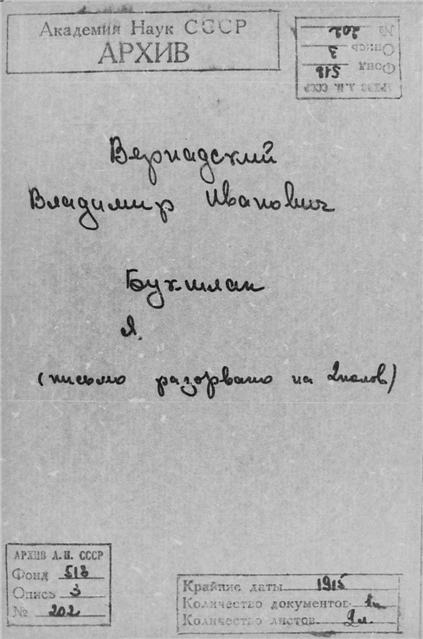 Академия Наук СССР
АРХИВ
АРХИВ А.Н. СССР
Фонд 518
Опись 3
№ 202
Вернадский
Владимир Иванович
Букшпан
Я.
(письмо разорвано на 2 полов)
АРХИВ А.Н. СССР
Фонд 518
Опись 3
№ 202
Крайние даты 1915
Количество документов
Количество листов 2 л